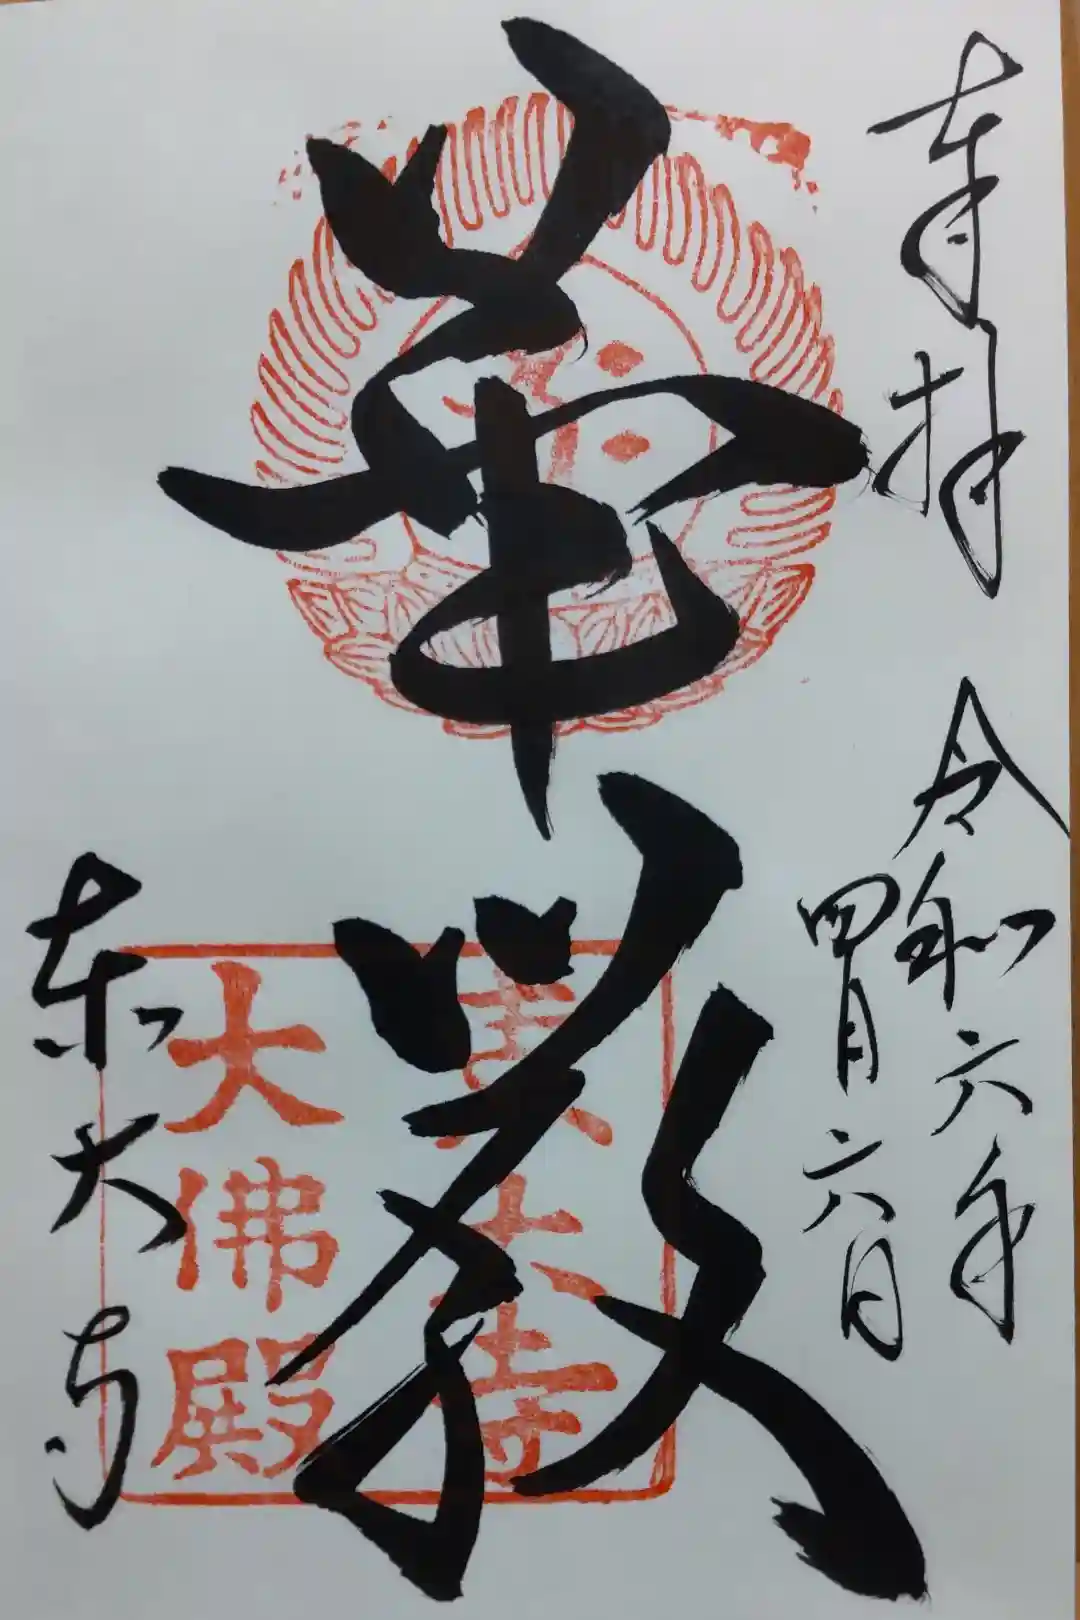 奉拝
令和六年
四月六日
華厳
東大寺
大佛殿
東大寺